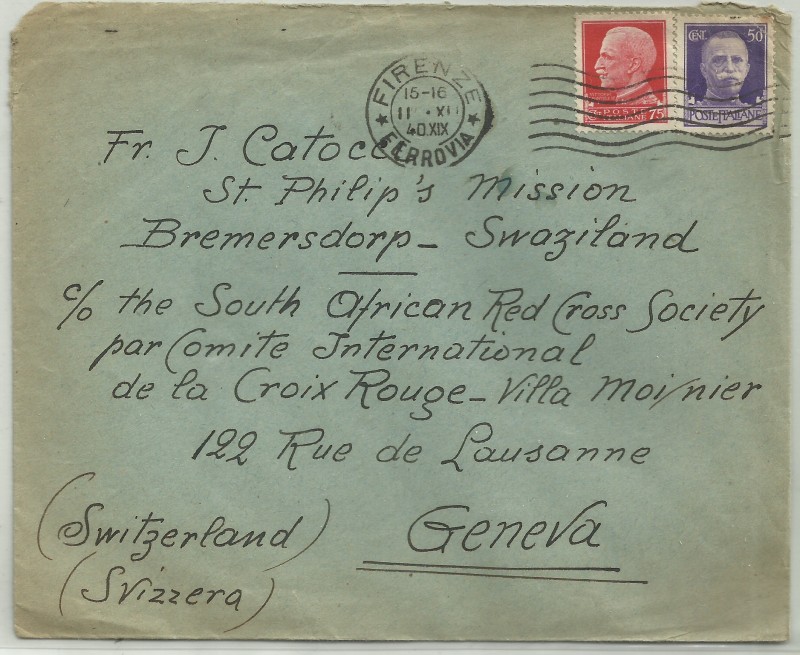 FIRENZE
15-16
40.XIX
FERROVIA
POSTE
ITALIANE 75
CENT. 50
POSTE ITALIANE
Fr. J.
St. Philip's Mission
Bremersdorp - Swaziland
c/o the South African Red Cross Society
par Comite International
de la Croix Rouge - Villa Moynier
122 Rue de Lausanne
Geneva
(Switzerland)
(Svizzera)